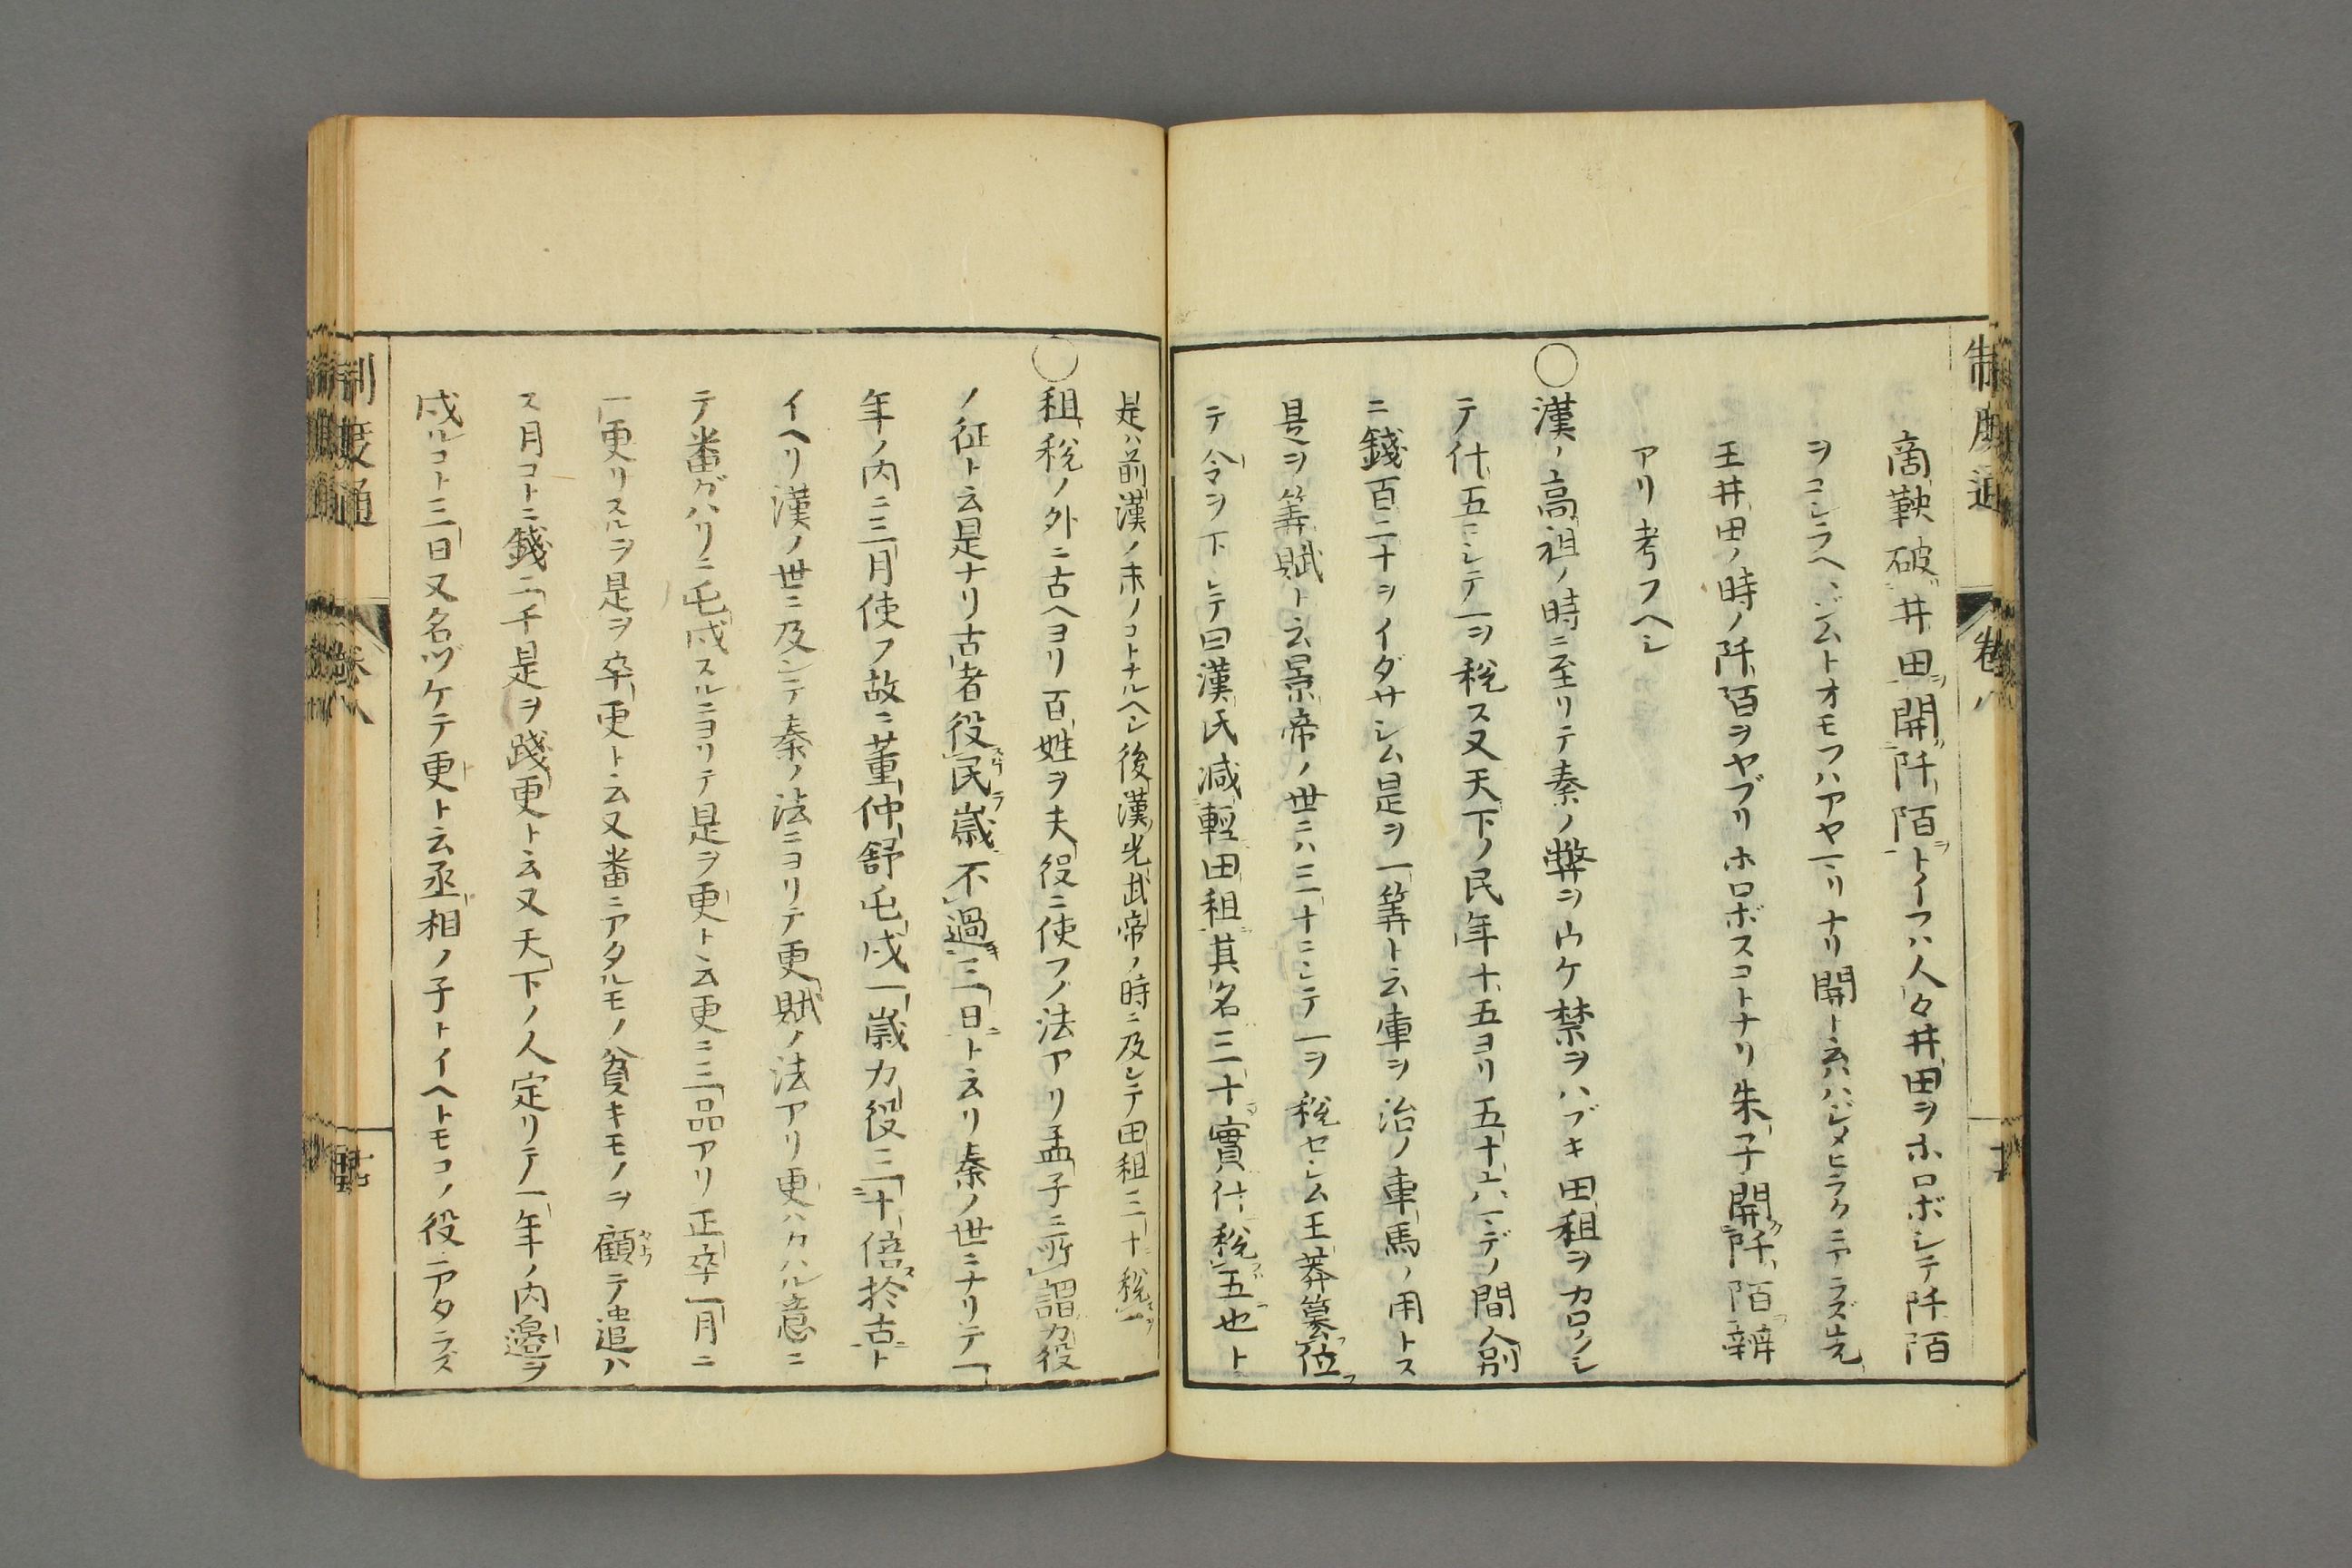 制度通 卷八
商鞅破井田開阡陌トイフハ人々井田ヲホロボシテ阡陌
ヲコシラヘシムトオモフハアヤマリナリ開ト云ハハジメヒラクニアラズ先
王井田ノ時ノ阡陌ヲヤブリホロボスコトナリ朱子開阡陌辨
アリ考フヘシ
○漢ノ高祖ノ時ニ至リテ秦ノ弊ヲウケ禁ヲハブキ田租ヲカロクシ
テ什五ニシテ一ヲ税ス又天下ノ民年十五ヨリ五十六マデノ間人別
ニ錢百二十ヲイダサシム是ヲ一筭ト云庫ヲ治ノ車馬ノ用トス
是ヲ筭賦ト云景帝ノ世ニハ三十ニシテ一ヲ税セシム王莽簒位
テ令ヲ下シテ曰漢氏減輕田租其名三十實什税五也ト
是ハ前漢ノ末ノコトナルヘシ後漢光武帝ノ時ニ及シテ田租三十税一
○租税ノ外ニ古ヘヨリ百姓ヲ夫役ニ使フノ法アリ孟子ニ所謂力役
ノ征ト云是ナリ古者役民歳不過三日ト云リ秦ノ世ニナリテ一
年ノ内ニ三月使フ故ニ董仲舒屯戍一歳力役三十倍於古ト
イヘリ漢ノ世ニ及シテ秦ノ法ニヨリテ更賦ノ法アリ更ハカハル意ニ
テ番ガハリニ屯戍スルニヨリテ是ヲ更ト云更ニ三品アリ正卒一月ニ
一更リスルヲ是ヲ卒更ト云又番ニアタルモノ貧キモノヲ顧テ追ハ
ス月コトニ錢二千是ヲ踐更ト云又天下ノ人定リテ一年ノ内邊ヲ
戍ルコト三日又名ヅケテ更ト云丞相ノ子トイヘトモコノ役ニアタラズ
制度通 卷八